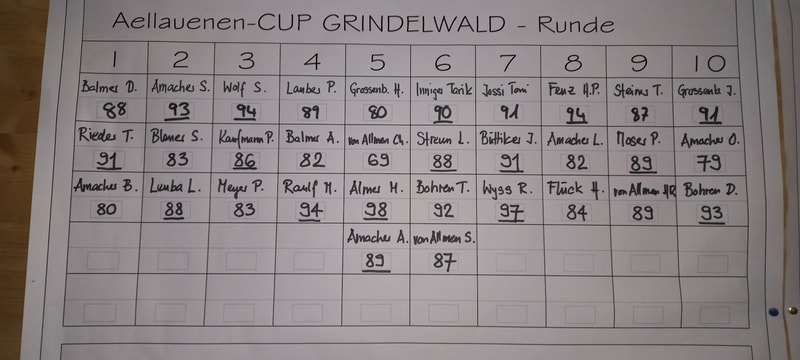 Aellauenen-CUP GRINDELWALD - Runde
1 2 3 4 5 6 7 8 9 10
Balmer D. Amacher S. Wolf S. Lauber P. Grossenb. H. Inniger Tarik Jossi Toni Feuz H.P. Steiner T. Grossenb J.
88 93 94 89 80 90 91 94 87 91
Rieder T. Blaner S. Kaufmann P. Balmer A. von Allmen Ch. Streun L. Büttiker J. Amacher L. Moser P. Amacher O.
91 83 86 82 69 88 91 82 89 79
Amacher B. Lumba L. Meyer P. Raulf M. Almer M. Bohren T. Wyss R. Flück H. von Allmen HR Bohren D.
80 88 83 94 98 92 97 84 89 93
Amacher A. von Allmen S.
89 87